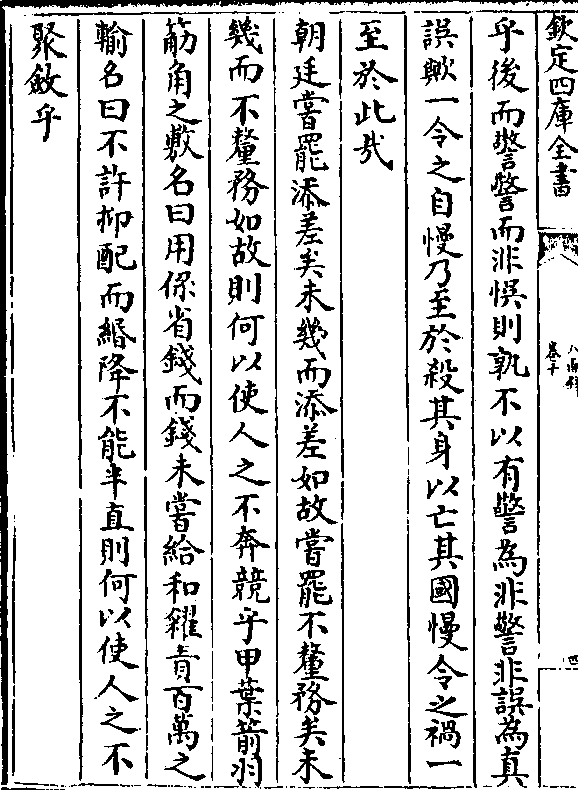 欽定四庫全書
八面鋒
卷十
四
乎後而警警而非悞則孰不以有警為非警非誤為真
誤歟一令之自慢乃至於殺其身以亡其國慢令之禍一
至於此㢤
朝廷嘗罷添差矣未幾而添差如故嘗罷不釐務矣未
幾而不釐務如故則何以使人之不奔競乎甲葉箭羽
筋角之敷名曰用係省錢而錢未嘗給和糴責百萬之
輸名曰不許抑配而緡降不能半直則何以使人之不
聚斂乎